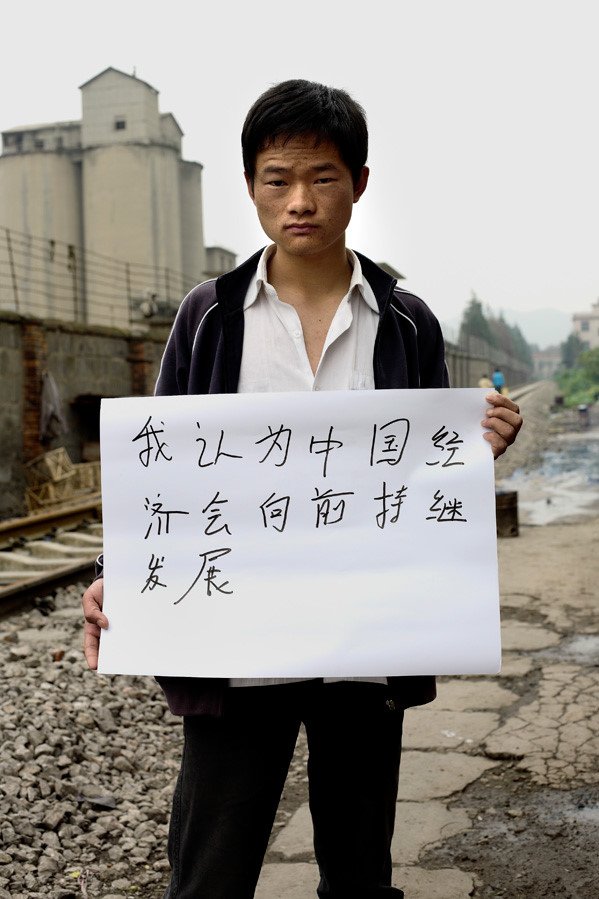 我认为中国经
济会向前持继
发展